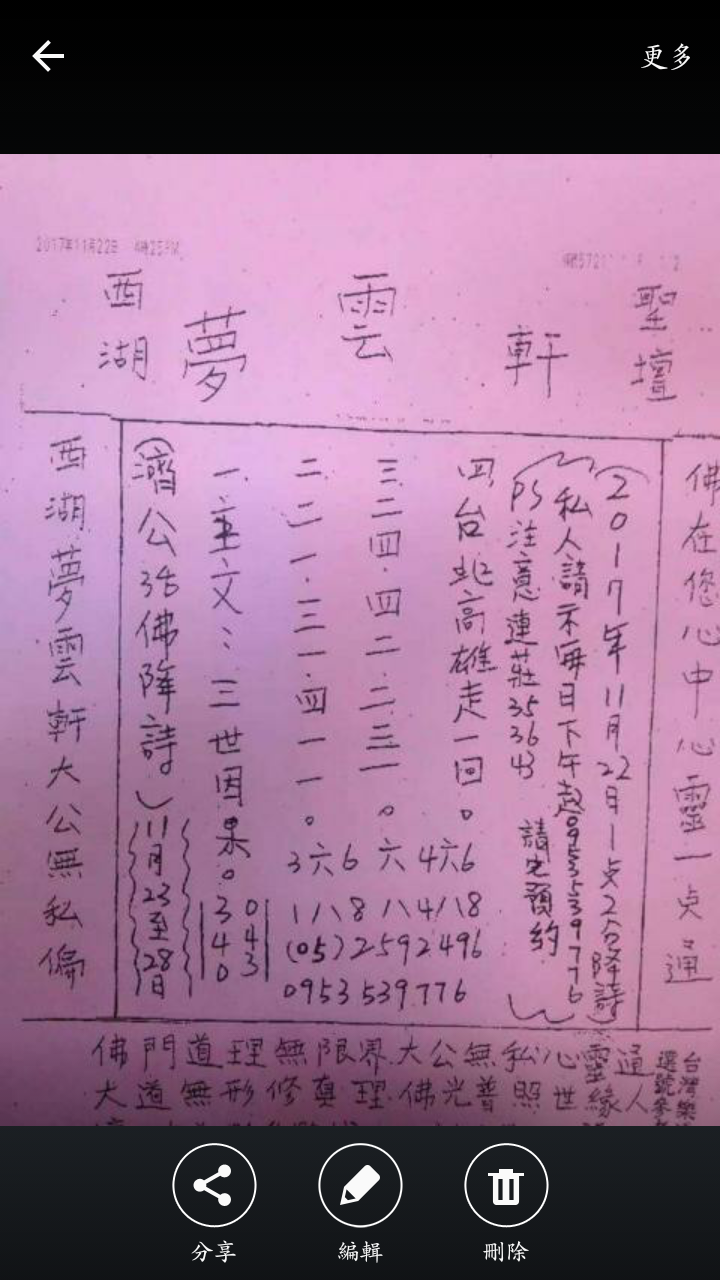 更多
2017年11月22日
西湖 夢 雲 軒 聖壇
佛在您心中心靈一点通
(2017年11月22日1点2分降詩)
私人請示每日下午起0953539776
PS注意連莊353643 請先預約
四台北高雄走一回。
三二四.四二.二三一。
二二一.三一.四一一。
一.主文:三世因果。
3六6 六 4六6
1八8 八4八8
(05)2592496
0953539776
340
043
(濟公活佛降詩)
11月23至28日
西湖夢雲軒大公無私偏
佛門道理無限界大公無私心靈通
大道無形修真理佛光普照世緣人
台灣樂
選號參考
分享
編輯
刪除